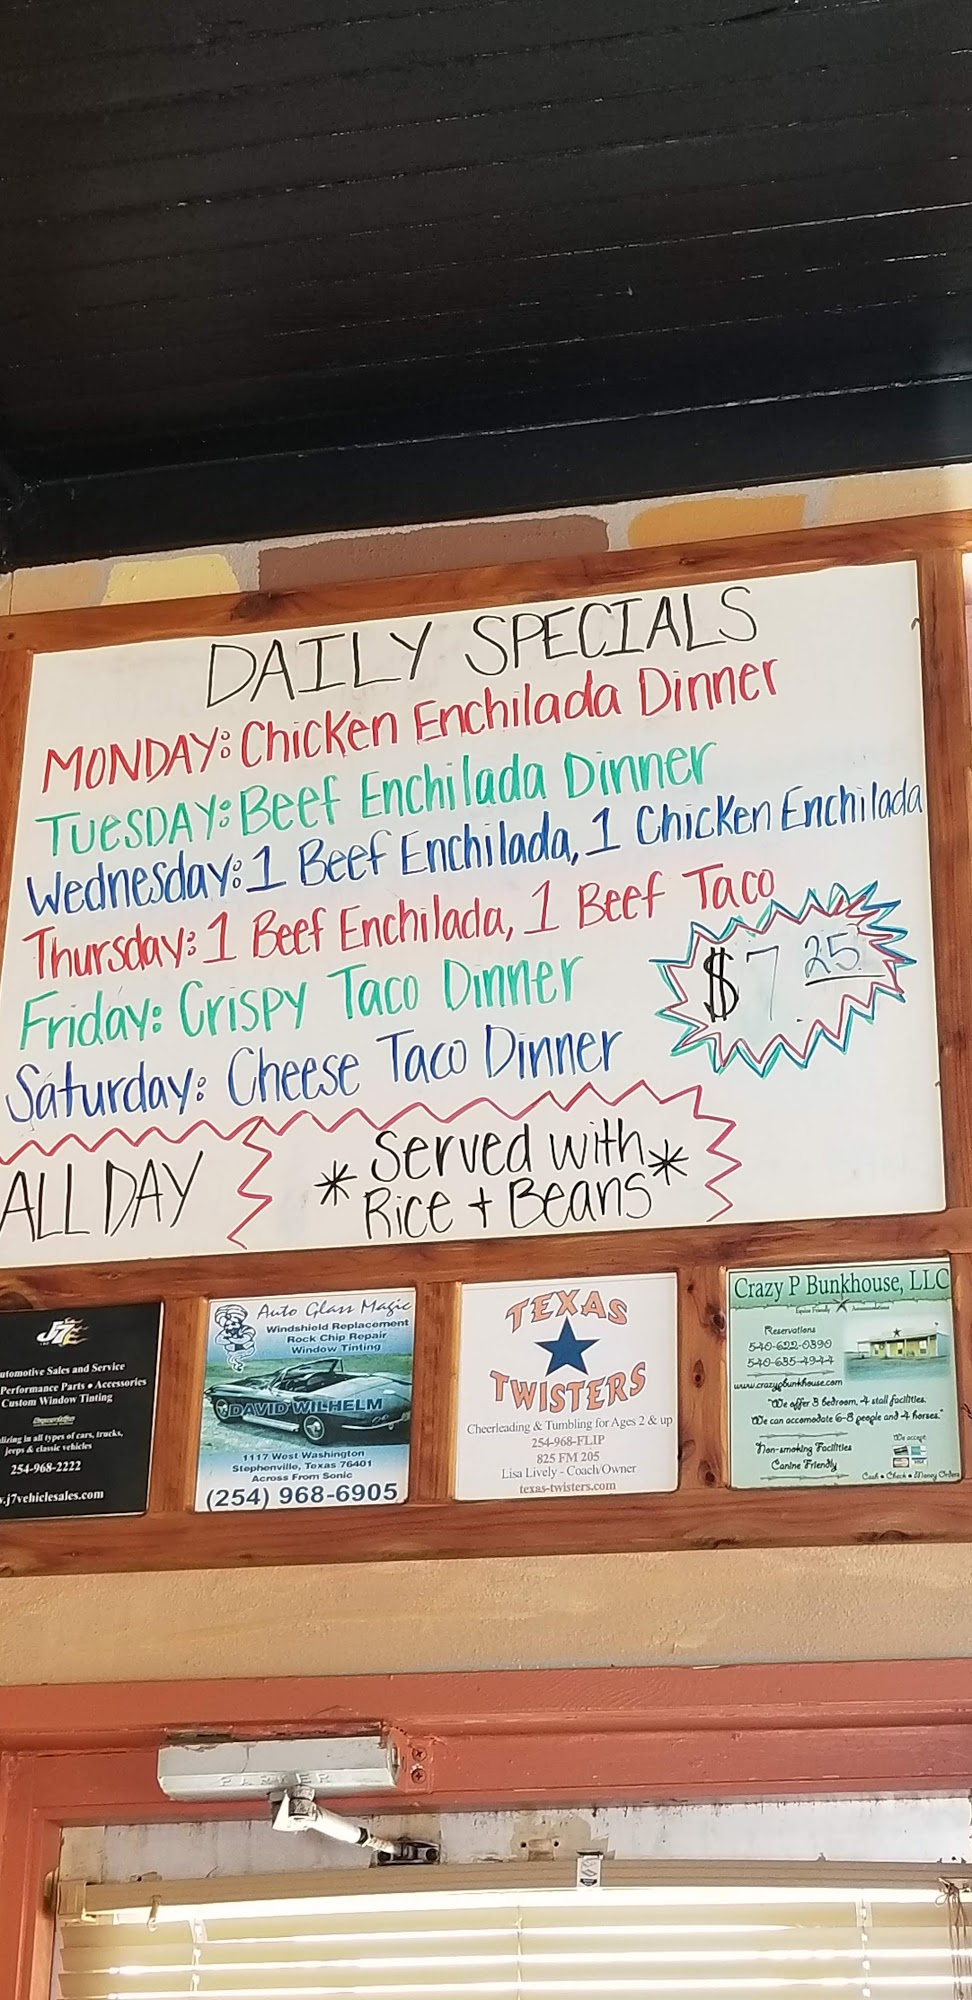 DAILY SPECIALS
MONDAY: Chicken Enchilada Dinner
TUESDAY: Beef Enchilada Dinner
Wednesday: 1 Beef Enchilada, 1 Chicken Enchilada
Thursday: 1 Beef Enchilada, 1 Beef Taco
Friday: Crispy Taco Dinner
Saturday: Cheese Taco Dinner
$7.25
ALL DAY
*Served with*
Rice + Beans
J7
utomotive Sales and Service
Performance Parts • Accessories
Custom Window Tinting
lizing in all types of cars, trucks,
jeeps & classic vehicles
254-968-2222
.j7vehiclesales.com
Auto Glass Magic
Windshield Replacement
Rock Chip Repair
Window Tinting
DAVID WILHELM
1117 West Washington
Stephenville, Texas 76401
Across From Sonic
(254) 968-6905
TEXAS
TWISTERS
Cheerleading & Tumbling for Ages 2 & up
254-968-FLIP
825 FM 205
Lisa Lively - Coach/Owner
texas-twisters.com
Crazy P Bunkhouse, LLC
Equine Friendly Accommodations
Reservations
540-622-0390
540-635-4944
www.crazypbunkhouse.com
"We offer 3 bedroom, 4 stall facilities.
We can accomodate 6-8 people and 4 horses."
Non-smoking Facilities
Canine Friendly
We accept
VISA
Cash • Check • Money Orders